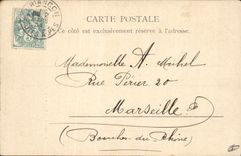 CARTE POSTALE
Ce côté est exclusivement réservé à l'adresse.
Mademoiselle A. Michel
Rue Périer 20
Marseille
(Bouches du Rhône)